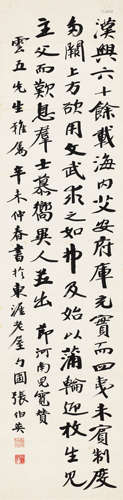 漢興六十餘載海內艾安府庫充實而四夷未賓制度
多闕上方欲用文武求之如弗及始以蒲輪迎枚生見
主父而歎息群士慕嚮異人並出 節河南兒寬贊
雲五先生雅屬辛未仲春書於東涯老屋勺圃張伯英